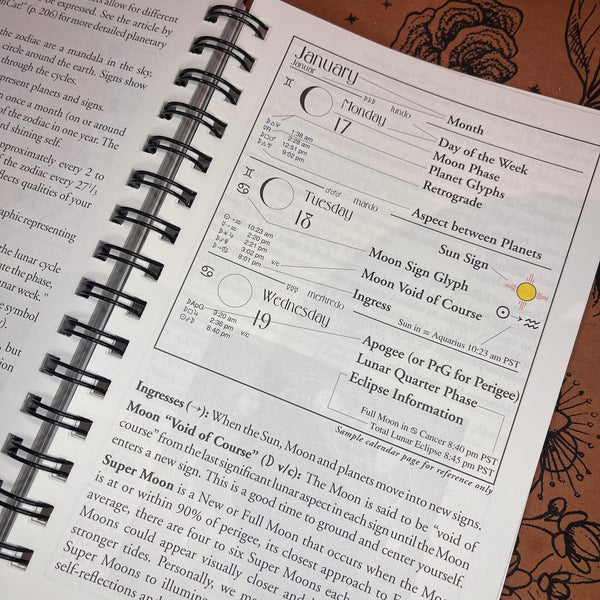 allows for different
be expressed. See the article by
nCat!" (p. 206) for more detailed planetary
the zodiac are a mandala in the sky,
circle around the earth. Signs show
through the cycles.
present planets and signs.
once a month (on or around
of the zodiac in one year. The
rd shining self.
pproximately every 2 to
of the zodiac every 27⅓
flects qualities of your
aphic representing
the lunar cycle
ate the phase,
unar week."
e symbol
but
January
Januar
Month
♊
☽☽☽
lundo
Monday
17
Day of the Week
Moon Phase
Planet Glyphs
Retrograde
1:38 am
2:28 am
12:51 pm
9:02 pm
♋
♂♂♂
mardo
Tuesday
18
Aspect between Planets
Sun Sign
Moon Sign Glyph
Moon Void of Course
☉→♒ 10:23 am
2:20 pm
2:21 pm
3:02 pm
8:01 pm
v/c
♋
☿☿☿
merkredo
Wednesday
19
Ingress
☉→♒
Sun in ♒ Aquarius 10:23 am PST
Apogee (or PrG for Perigee)
Lunar Quarter Phase
Eclipse Information
☽ApG 9:20 am
2:36 pm
8:40 pm
v/c
Full Moon in ♋ Cancer 8:40 pm PST
Total Lunar Eclipse 8:45 pm PST
Sample calendar page for reference only
Ingresses (→): When the Sun, Moon and planets move into new signs.
Moon "Void of Course" (☽ v/c): The Moon is said to be "void of
course" from the last significant lunar aspect in each sign until the Moon
enters a new sign. This is a good time to ground and center yourself.
Super Moon is a New or Full Moon that occurs when the Moon
is at or within 90% of perigee, its closest approach to Earth. On
average, there are four to six Super Moons each
Moons could appear visually closer and
stronger tides. Personally, we may
Super Moons to illumin
self-reflections and